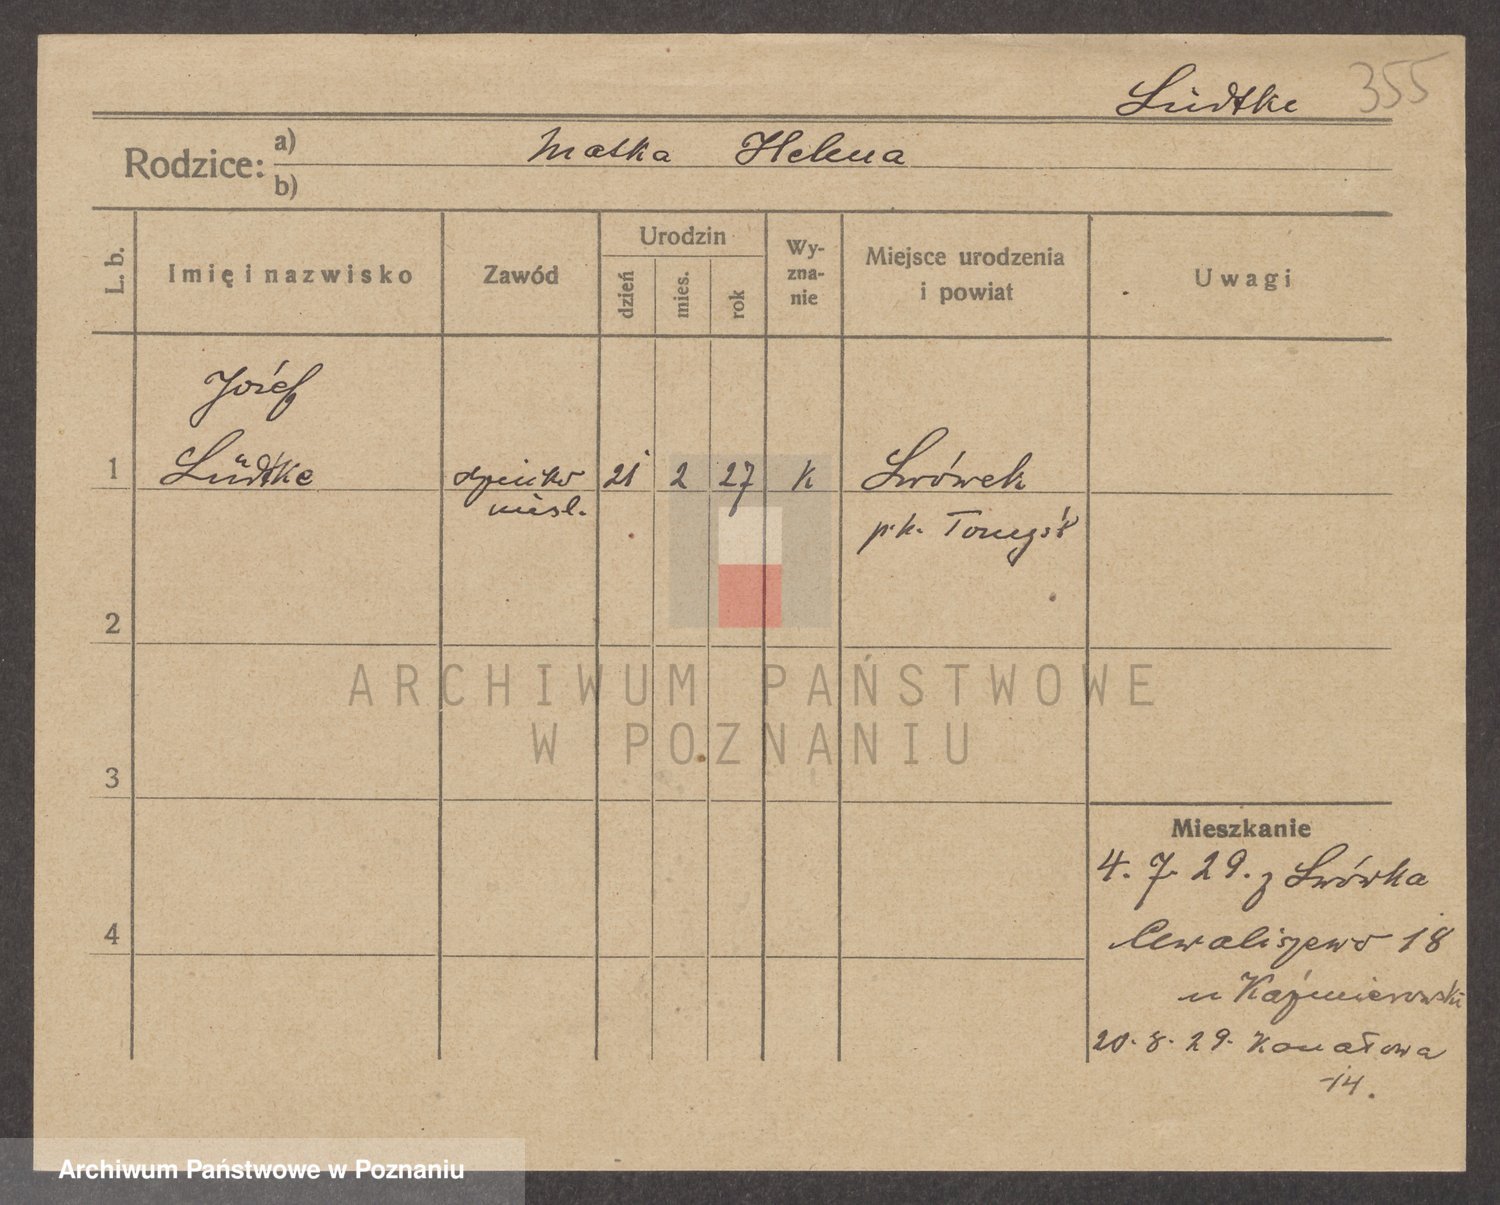 Lüdtke 355
Rodzice: a) Matka Helena
b)
L. b.
Imię i nazwisko
Zawód
Urodzin
dzień
mies.
rok
Wy-
zna-
nie
Miejsce urodzenia
i powiat
Uwagi
Józef
1 Lüdtke dziecko 21 2 27 K Lwówek
nieśl. p. n. Tomyśl
2
ARCHIWUM PAŃSTWOWE
W POZNANIU
3
Mieszkanie
4. 7. 29. z Lwówka
4 Chwaliszewo 18
u Kaźmierowski
20. 8. 29. Kanałowa
14.
Archiwum Państwowe w Poznaniu